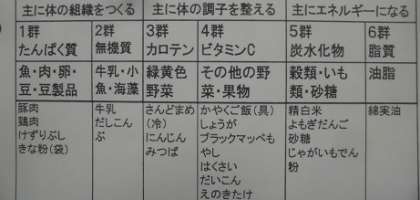 主に体の組織をつくる 主に体の調子を整える 主にエネルギーになる
1群 2群 3群 4群 5群 6群
たんぱく質 無機質 カロテン ビタミンC 炭水化物 脂質
魚・肉・卵・ 牛乳・小 緑黄色 その他の野 穀類・いも 油脂
豆・豆製品 魚・海藻 野菜 菜・果物 類・砂糖
豚肉 牛乳 さんどまめ かやくご飯(具) 精白米 綿実油
鶏肉 だしこん (冷) しょうが よもぎだんご
けずりぶし ぶ にんじん ブラックマッペも 砂糖
きな粉(袋) みつば やし じゃがいもでん
はくさい 粉
だいこん
えのきたけ